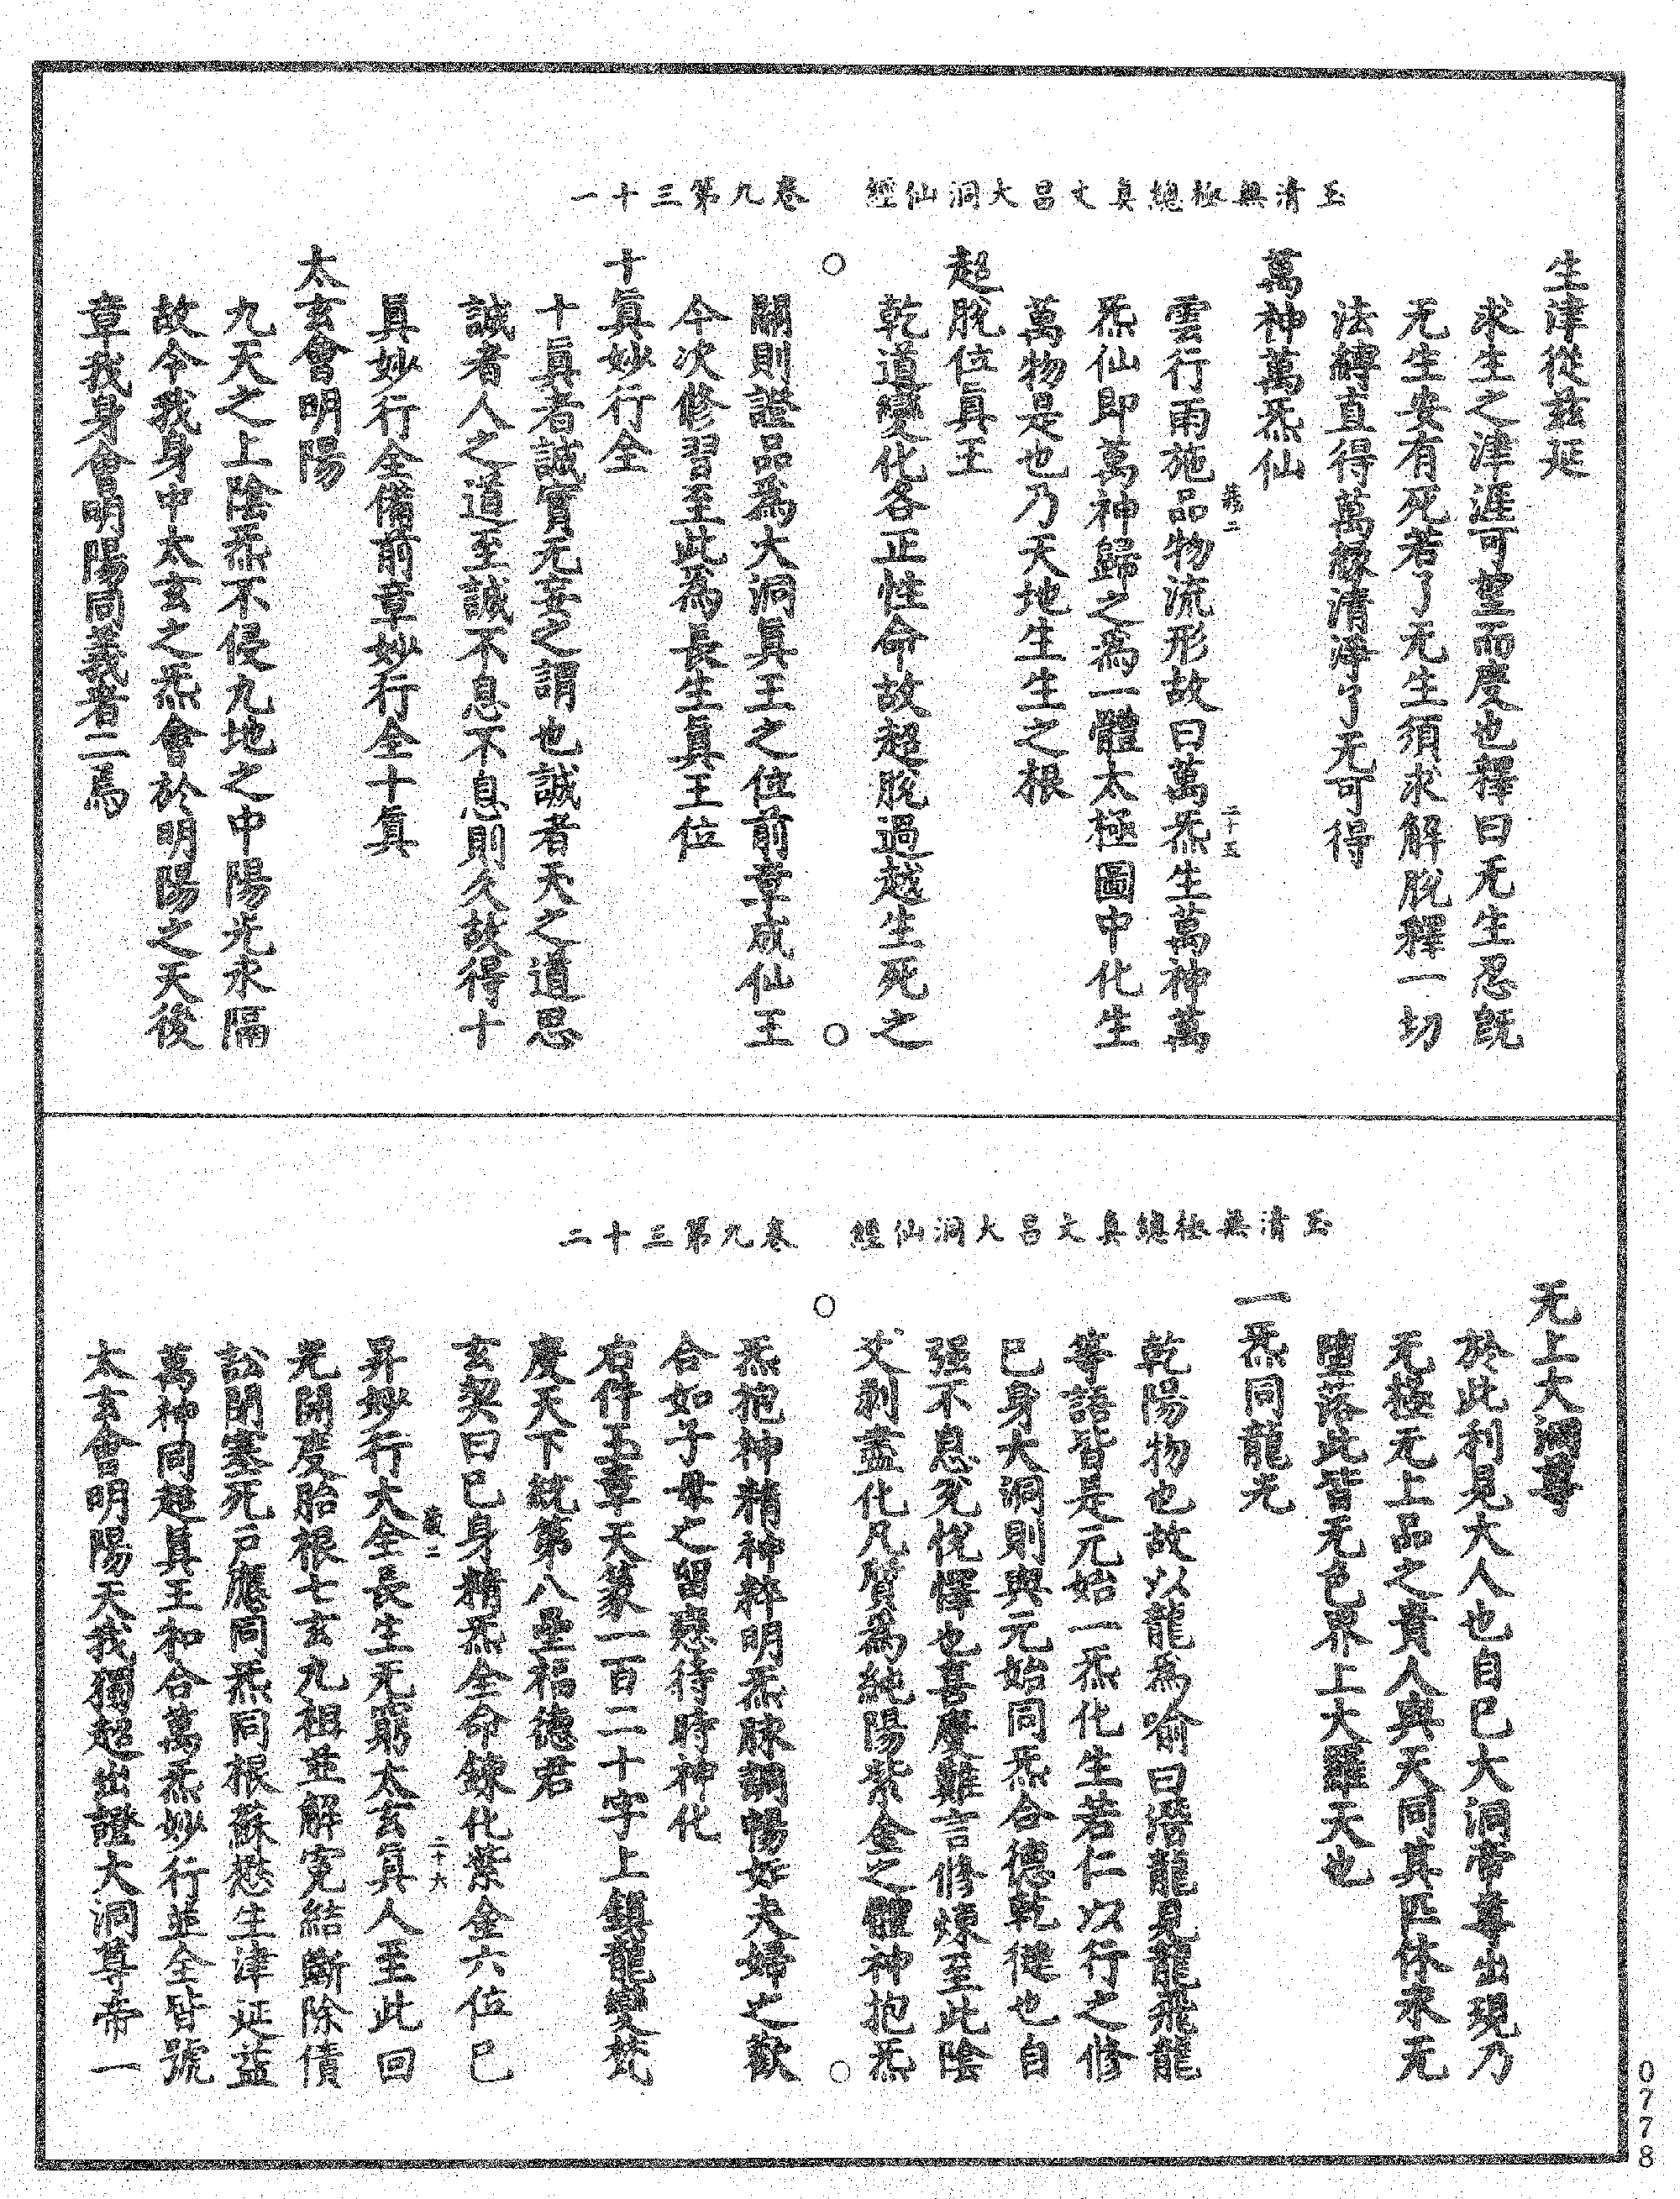 玉清無極總真文昌大洞仙經　卷九第三十一
生津從茲延
求生之津涯可望而度也釋曰无生忍旣
无生安有死若了无生須求解脫釋一切
法縛直得萬緣清淨了无可得
萬神萬炁仙
雲行雨施品物流形故曰萬炁生萬神萬
二十五
炁仙即萬神歸之為一體太極圖中化生
萬物是也乃天地生生之根
超脫位真王
乾道變化各正性命故超脫過越生死之
關則證品為大洞真王之位前章成仙王
今次修習至此為長生真王位
十真妙行全
十真者誠實无妄之謂也誠者天之道思
誠者人之道至誠不息不息則久故得十
真妙行全備前章妙行全十真
太玄會明陽
九天之上陰炁不侵九地之中陽光永隔
故令我身中太玄之炁會於明陽之天後
章我身會明陽同義者二焉
玉清無極總真文昌大洞仙經　卷九第三十二
无上大洞尊
於此利見大人也自己大洞帝尊出現乃
无極无上品之貴人與天同其匹休永无
墮落此皆无色界上大羅天也
一炁同龍光
乾陽物也故以龍為喻曰潛龍見龍飛龍
等語皆是元始一炁化生若仁以行之修
已身大洞則與元始同炁合德乾健也自
强不息兊悅懌也喜慶難言修煉至此陰
爻剥盡化凡質為純陽紫金之體神抱炁
炁抱神精神粹明炁脉調暢如夫婦之歡
合如子母之留戀待時神化
右件玉章天篆一百二十字上鎮龍變梵
慶天下統第八壘福德君
玄契曰已身精炁全命鍊化紫金六位已
二十六
昇妙行大全長生无窮太玄真人至此回
光開度胎根七玄九祖並解寃結斷除債
訟閉塞死戶應同炁同根蘇愁生津延益
萬神同超真王和合萬炁妙行並全皆號
太玄會明陽天我獨超出證大洞尊帝一
0778